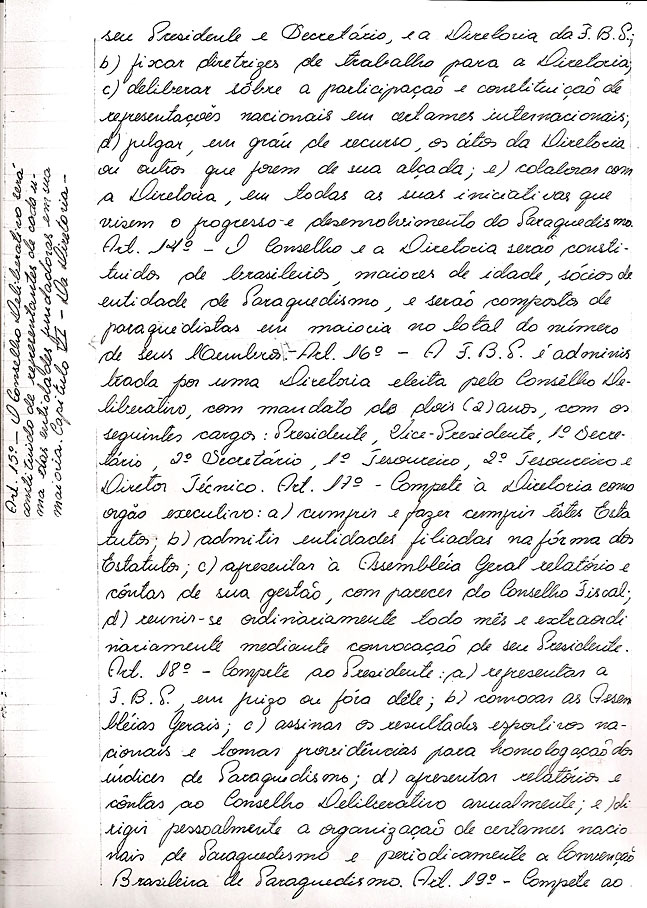 seu Presidente e Secretário, e a Diretoria da F.B.P.;
b) fixar diretrizes de trabalho para a Diretoria;
c) deliberar sôbre a participação e constituição de
representações nacionais em certames internacionais;
d) julgar, em gráu de recurso, os átos da Diretoria
ou outros que forem de sua alçada; e) colaborar com
a Diretoria, em todas as suas iniciativas que
visem o progresso e desenvolvimento do Paraquedismo.
Art. 14º - O Conselho e a Diretoria serão consti-
tuidos de brasileiros, maiores de idade, sócios de
entidade de Paraquedismo, e serão compostos de
paraquedistas em maioria no total do número
de seus Membros.- Art. 16º - A F.B.P. é adminis
trada por uma Diretoria eleita pelo Consêlho De-
liberativo, com mandato de dois (2) anos, com os
seguintes cargos: Presidente, Vice-Presidente, 1º Secre-
tário, 2º Secretário, 1º Tesoureiro, 2º Tesoureiro e
Diretor Técnico. Art. 17º - Compete à Diretoria como
orgão executivo: a) cumprir e fazer cumprir êstes Esta
tutos; b) admitir entidades filiadas na fórma dos
Estatutos; c) apresentar à Assembléia Geral relatório e
cóntas de sua gestão, com parecer do Conselho Fiscal;
d) reunir-se ordinàriamente todo mês e extraordi
nàriamente mediante convocação de seu Presidente.
Art. 18º - Compete ao Presidente: a) representar a
F.B.P., em juizo ou fóra dêle; b) convocar as Assem
bléias Gerais; c) assinar os resultados esportivos na-
cionais e tomar providências para homologação dos
índices de Paraquedismo; d) apresentar relatórios e
cóntas ao Conselho Deliberativo anualmente; e) di
rigir pessoalmente a organização de certames nacio
nais de Paraquedismo e periodicamente a Convenção
Brasileira de Paraquedismo. Art. 19º - Compete ao
Art. 15º - O Conselho Deliberativo será
constituido de representantes de cada u-
ma das entidades fundadoras em sua
maioria. Capitulo VII - Da Diretoria -